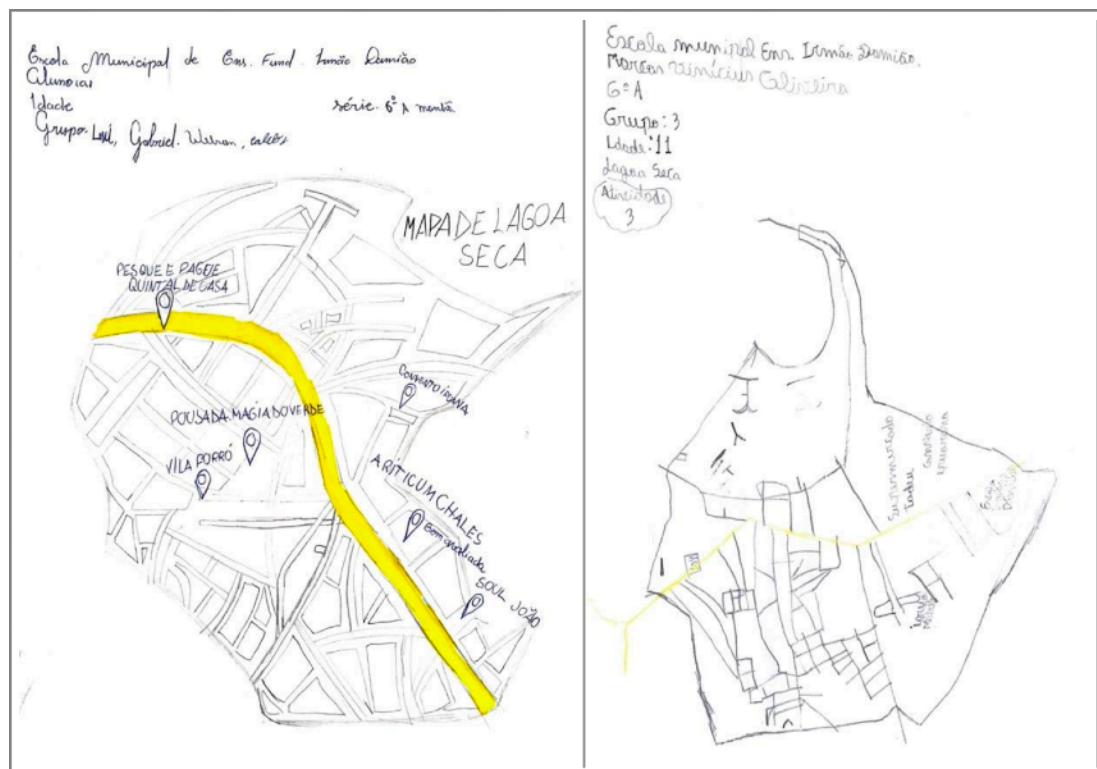 Escola Municipal de Ens. Fund. Irmão Damião
Aluno(a)
Idade
série. 6º A manhã
Grupo: Gabriel.
MAPA DE LAGOA
SECA
PESQUE E PAGUE
QUINTAL DE CASA
CONVENTO IPUANA
POUSADA MAGIA DO VERDE
VILA PORRÓ
ARITICUM CHALES
Bem avaliada
SOUL JOÃO
Escola munipal Ens. Irmão Damião.
Marcos Vinícius Oliveira
6º A
Grupo: 3
Idade: 11
Lagoa Seca
Atividade
3
Supermercado
Tadeu
Convento
Ipuarana
Escola
Irmão
Damião
Igreja
Matriz